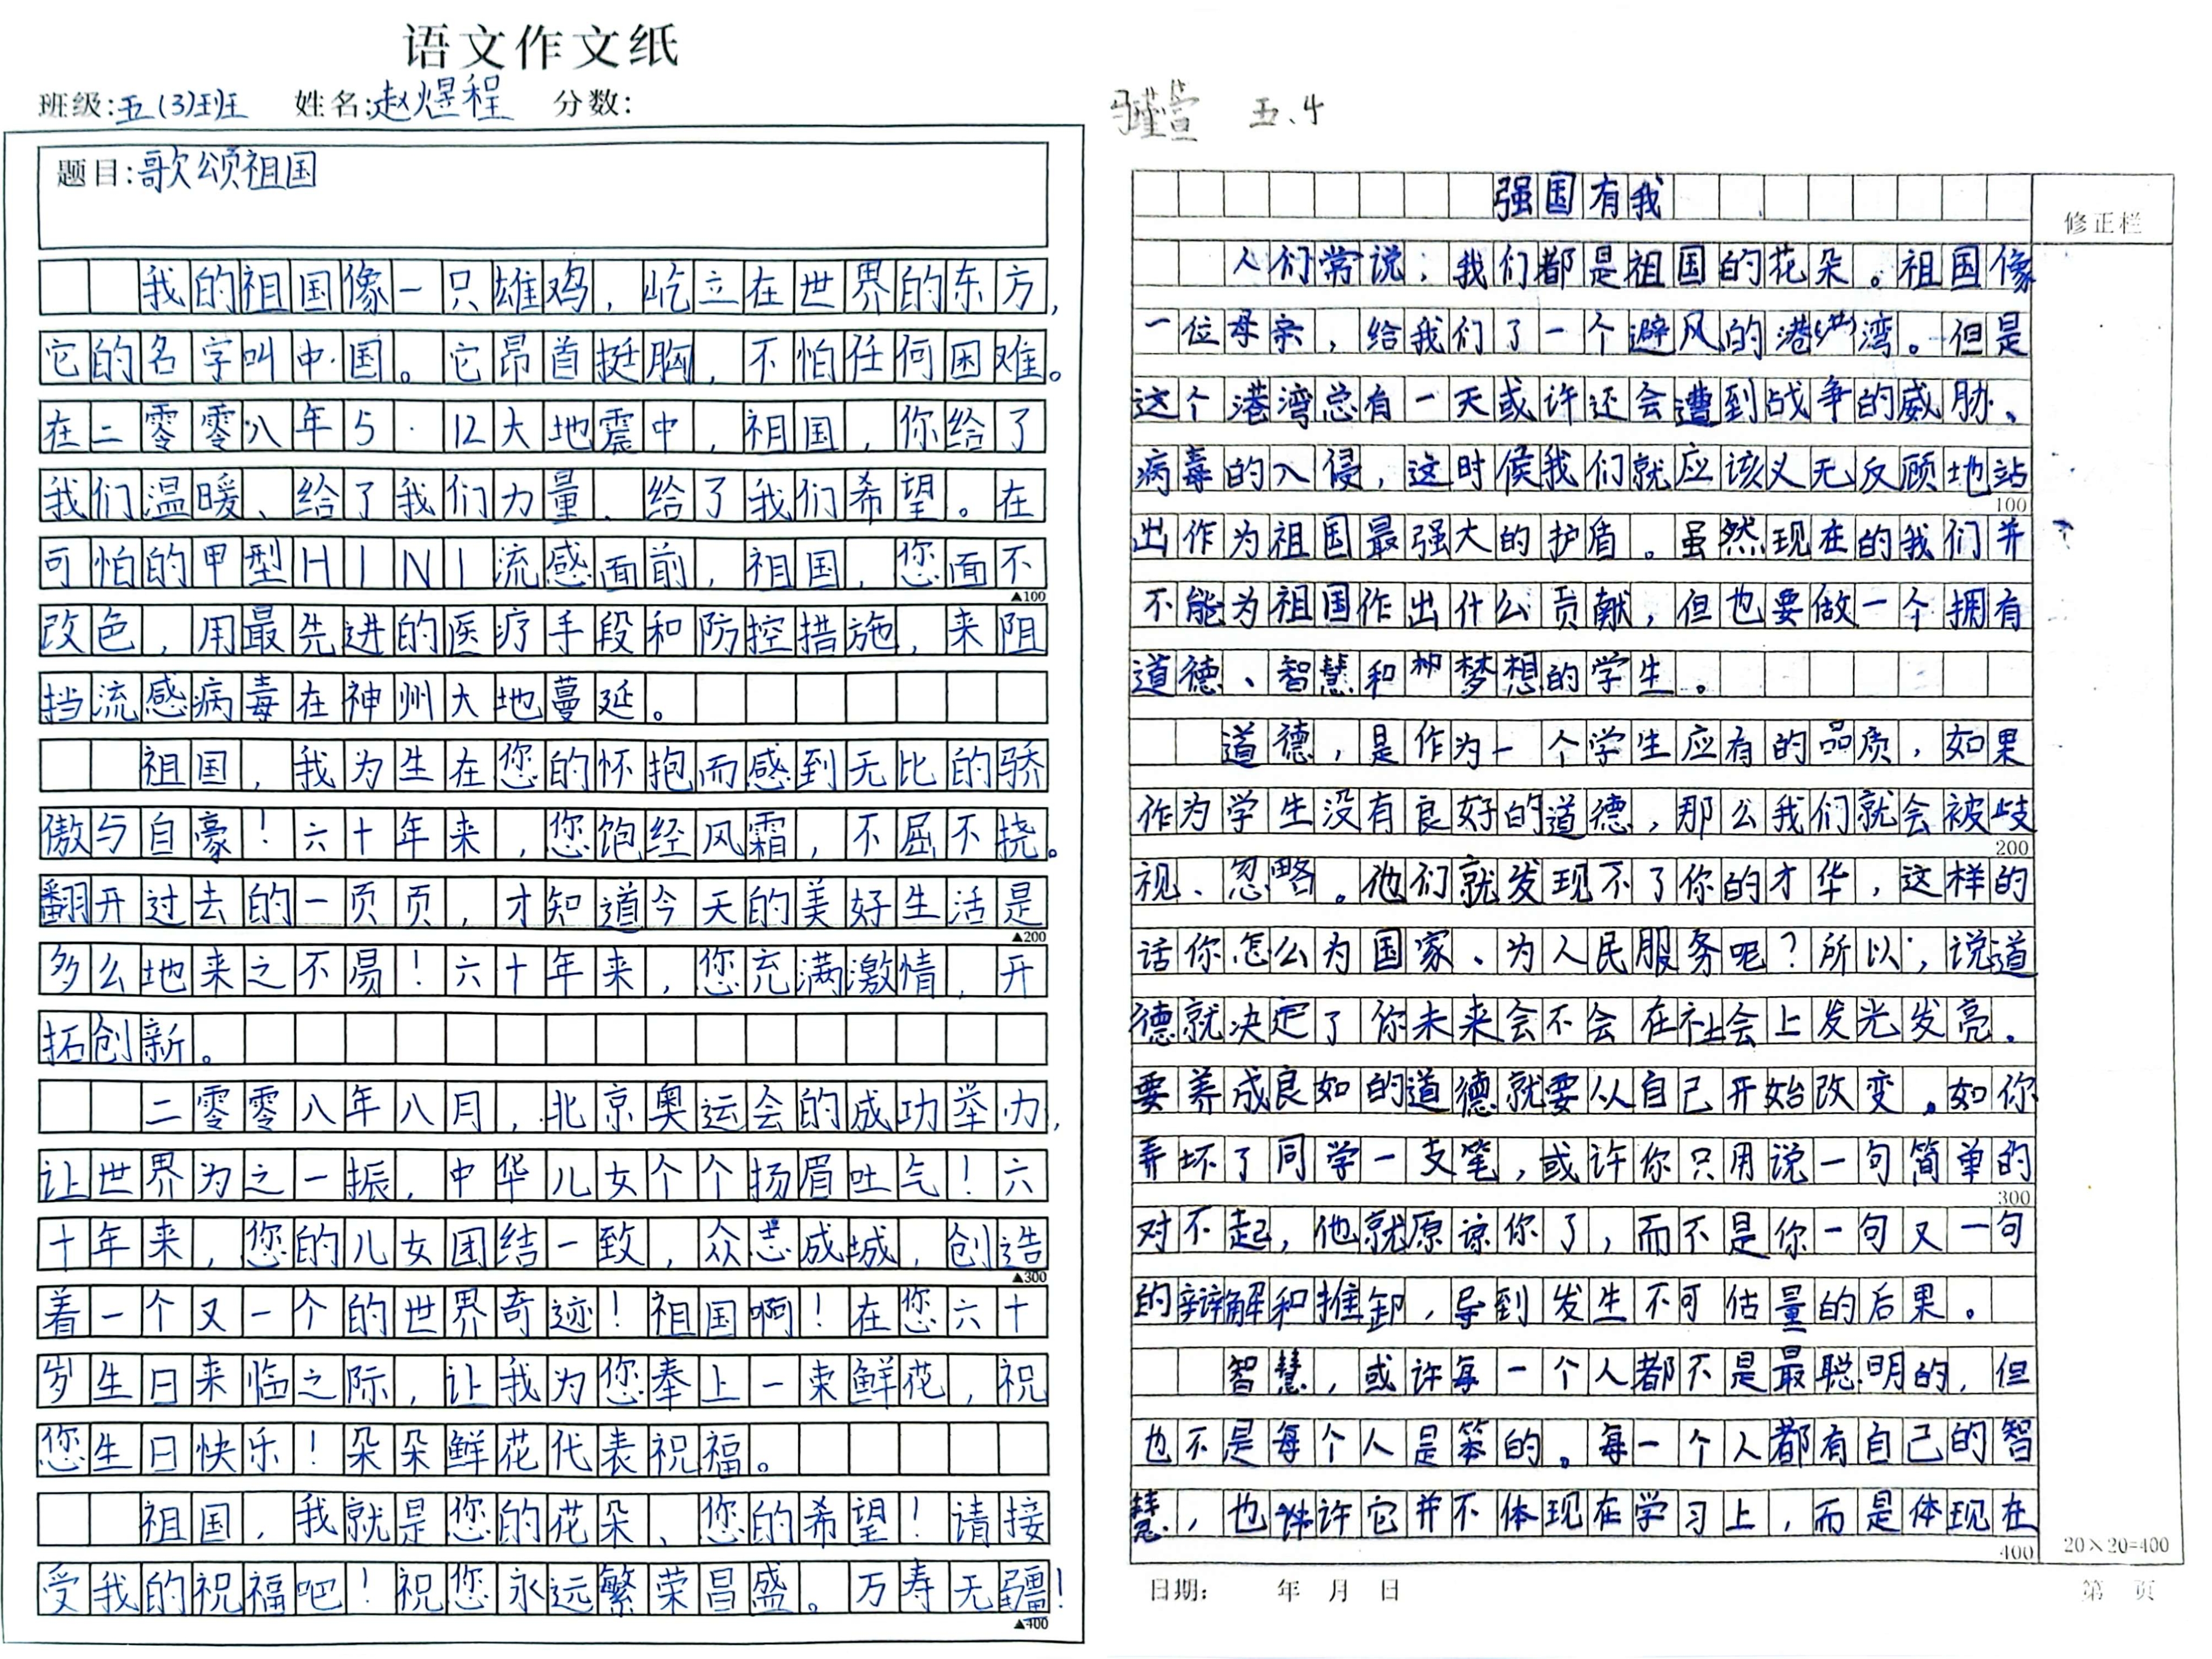 语文作文纸
班级:五(3)班 姓名:赵煜程 分数:
题目:歌颂祖国
我的祖国像一只雄鸡，屹立在世界的东方，
它的名字叫中国。它昂首挺胸，不怕任何困难。
在二零零八年5·12大地震中，祖国，你给了
我们温暖、给了我们力量、给了我们希望。在
可怕的甲型H1N1流感面前，祖国，您面不
▲100
改色，用最先进的医疗手段和防控措施，来阻
挡流感病毒在神州大地蔓延。
祖国，我为生在您的怀抱而感到无比的骄
傲与自豪！六十年来，您饱经风霜，不屈不挠。
翻开过去的一页页，才知道今天的美好生活是
▲200
多么地来之不易！六十年来，您充满激情，开
拓创新。
二零零八年八月，北京奥运会的成功举办，
让世界为之一振，中华儿女个个扬眉吐气！六
十年来，您的儿女团结一致，众志成城，创造
▲300
着一个又一个的世界奇迹！祖国啊！在您六十
岁生日来临之际，让我为您奉上一束鲜花，祝
您生日快乐！朵朵鲜花代表祝福。
祖国，我就是您的花朵、您的希望！请接
受我的祝福吧！祝您永远繁荣昌盛。万寿无疆！
▲400
马瑾萱 五.4
强国有我
修正栏
人们常说：我们都是祖国的花朵。祖国像
一位母亲，给我们了一个避风的港湾。但是
这个港湾总有一天或许还会遭到战争的威胁、
病毒的入侵，这时候我们就应该义无反顾地站
100
出作为祖国最强大的护盾。虽然现在的我们并
不能为祖国作出什么贡献，但也要做一个拥有
道德、智慧和梦想的学生。
道德，是作为一个学生应有的品质，如果
作为学生没有良好的道德，那么我们就会被歧
200
视、忽略。他们就发现不了你的才华，这样的
话你怎么为国家、为人民服务呢？所以，说道
德就决定了你未来会不会在社会上发光发亮。
要养成良如的道德就要从自己开始改变。如你
弄坏了同学一支笔，或许你只用说一句简单的
300
对不起，他就原谅你了，而不是你一句又一句
的辩解和推卸，导到发生不可估量的后果。
智慧，或许每一个人都不是最聪明的，但
也不是每个人是笨的。每一个人都有自己的智
慧，也许它并不体现在学习上，而是体现在
400
20×20=400
日期： 年 月 日 第 页